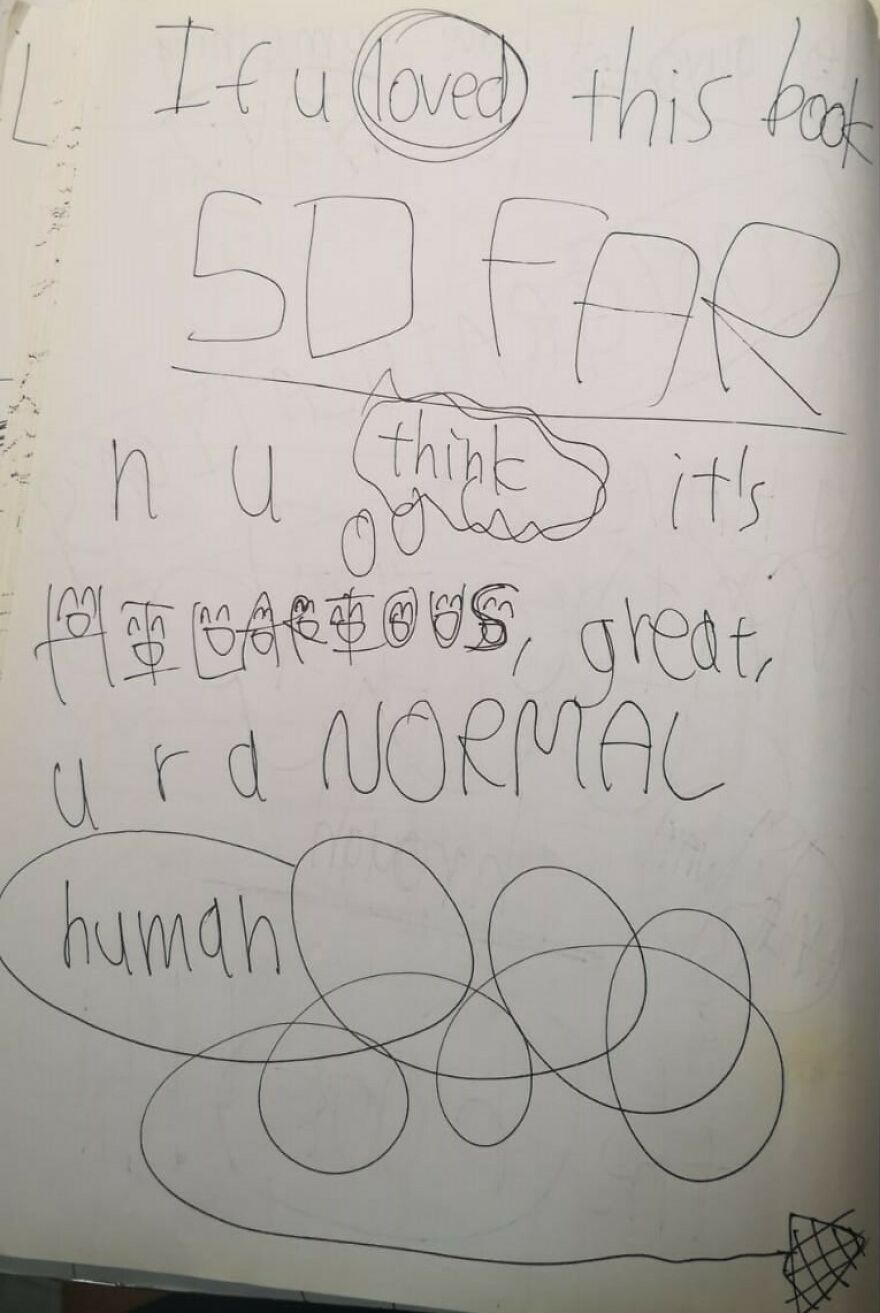 If u loved this book
SO FAR
n u think it's
HILARIOUS, great,
u r a NORMAL
human